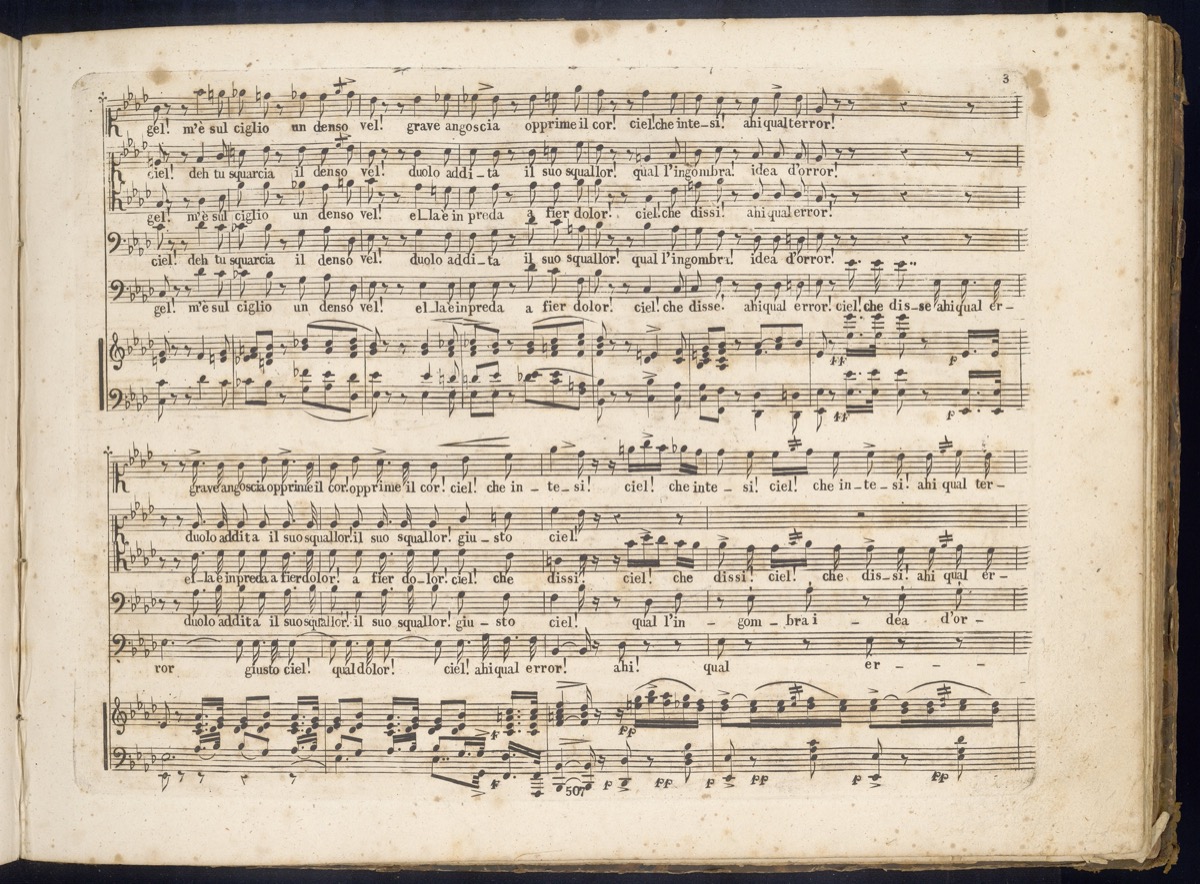 3
gel! m'è sul ciglio un denso vel! grave angoscia opprime il cor! ciel! che inte_si! ahi qual terror!
ciel! deh tu squarcia il denso vel! duolo addi_ta il suo squallor! qual l'ingombra! idea d'orror!
gel! m'è sul ciglio un denso vel! el_la è in preda a fier dolor! ciel! che dissi! ahi qual error!
ciel! deh tu squarcia il denso vel! duolo addi_ta il suo squallor! qual l'ingombra! idea d'orror!
gel! m'è sul ciglio un denso vel! el_la è in preda a fier dolor! ciel! che disse! ahi qual error! ciel! che dis_se ahi qual er_
ff p
ff p
grave angoscia opprime il cor! opprime il cor! ciel! che in_te_si! ciel! che inte_si! ciel! che in_te_si! ahi qual ter_
duolo addita il suo squallor! il suo squallor! giu_sto ciel!
el_la è in preda a fier dolor! a fier do_lor! ciel! che dissi! ciel! che dissi! ciel! che dis_si! ahi qual er_
duolo addita il suo squallor! il suo squallor! giu_sto ciel! qual l'in_gom_bra i_dea d'or_
ror giusto ciel! qual dolor! ciel! ahi qual error! ahi! qual er_ _ _ _
f pp
f p pp p pp p pp
507